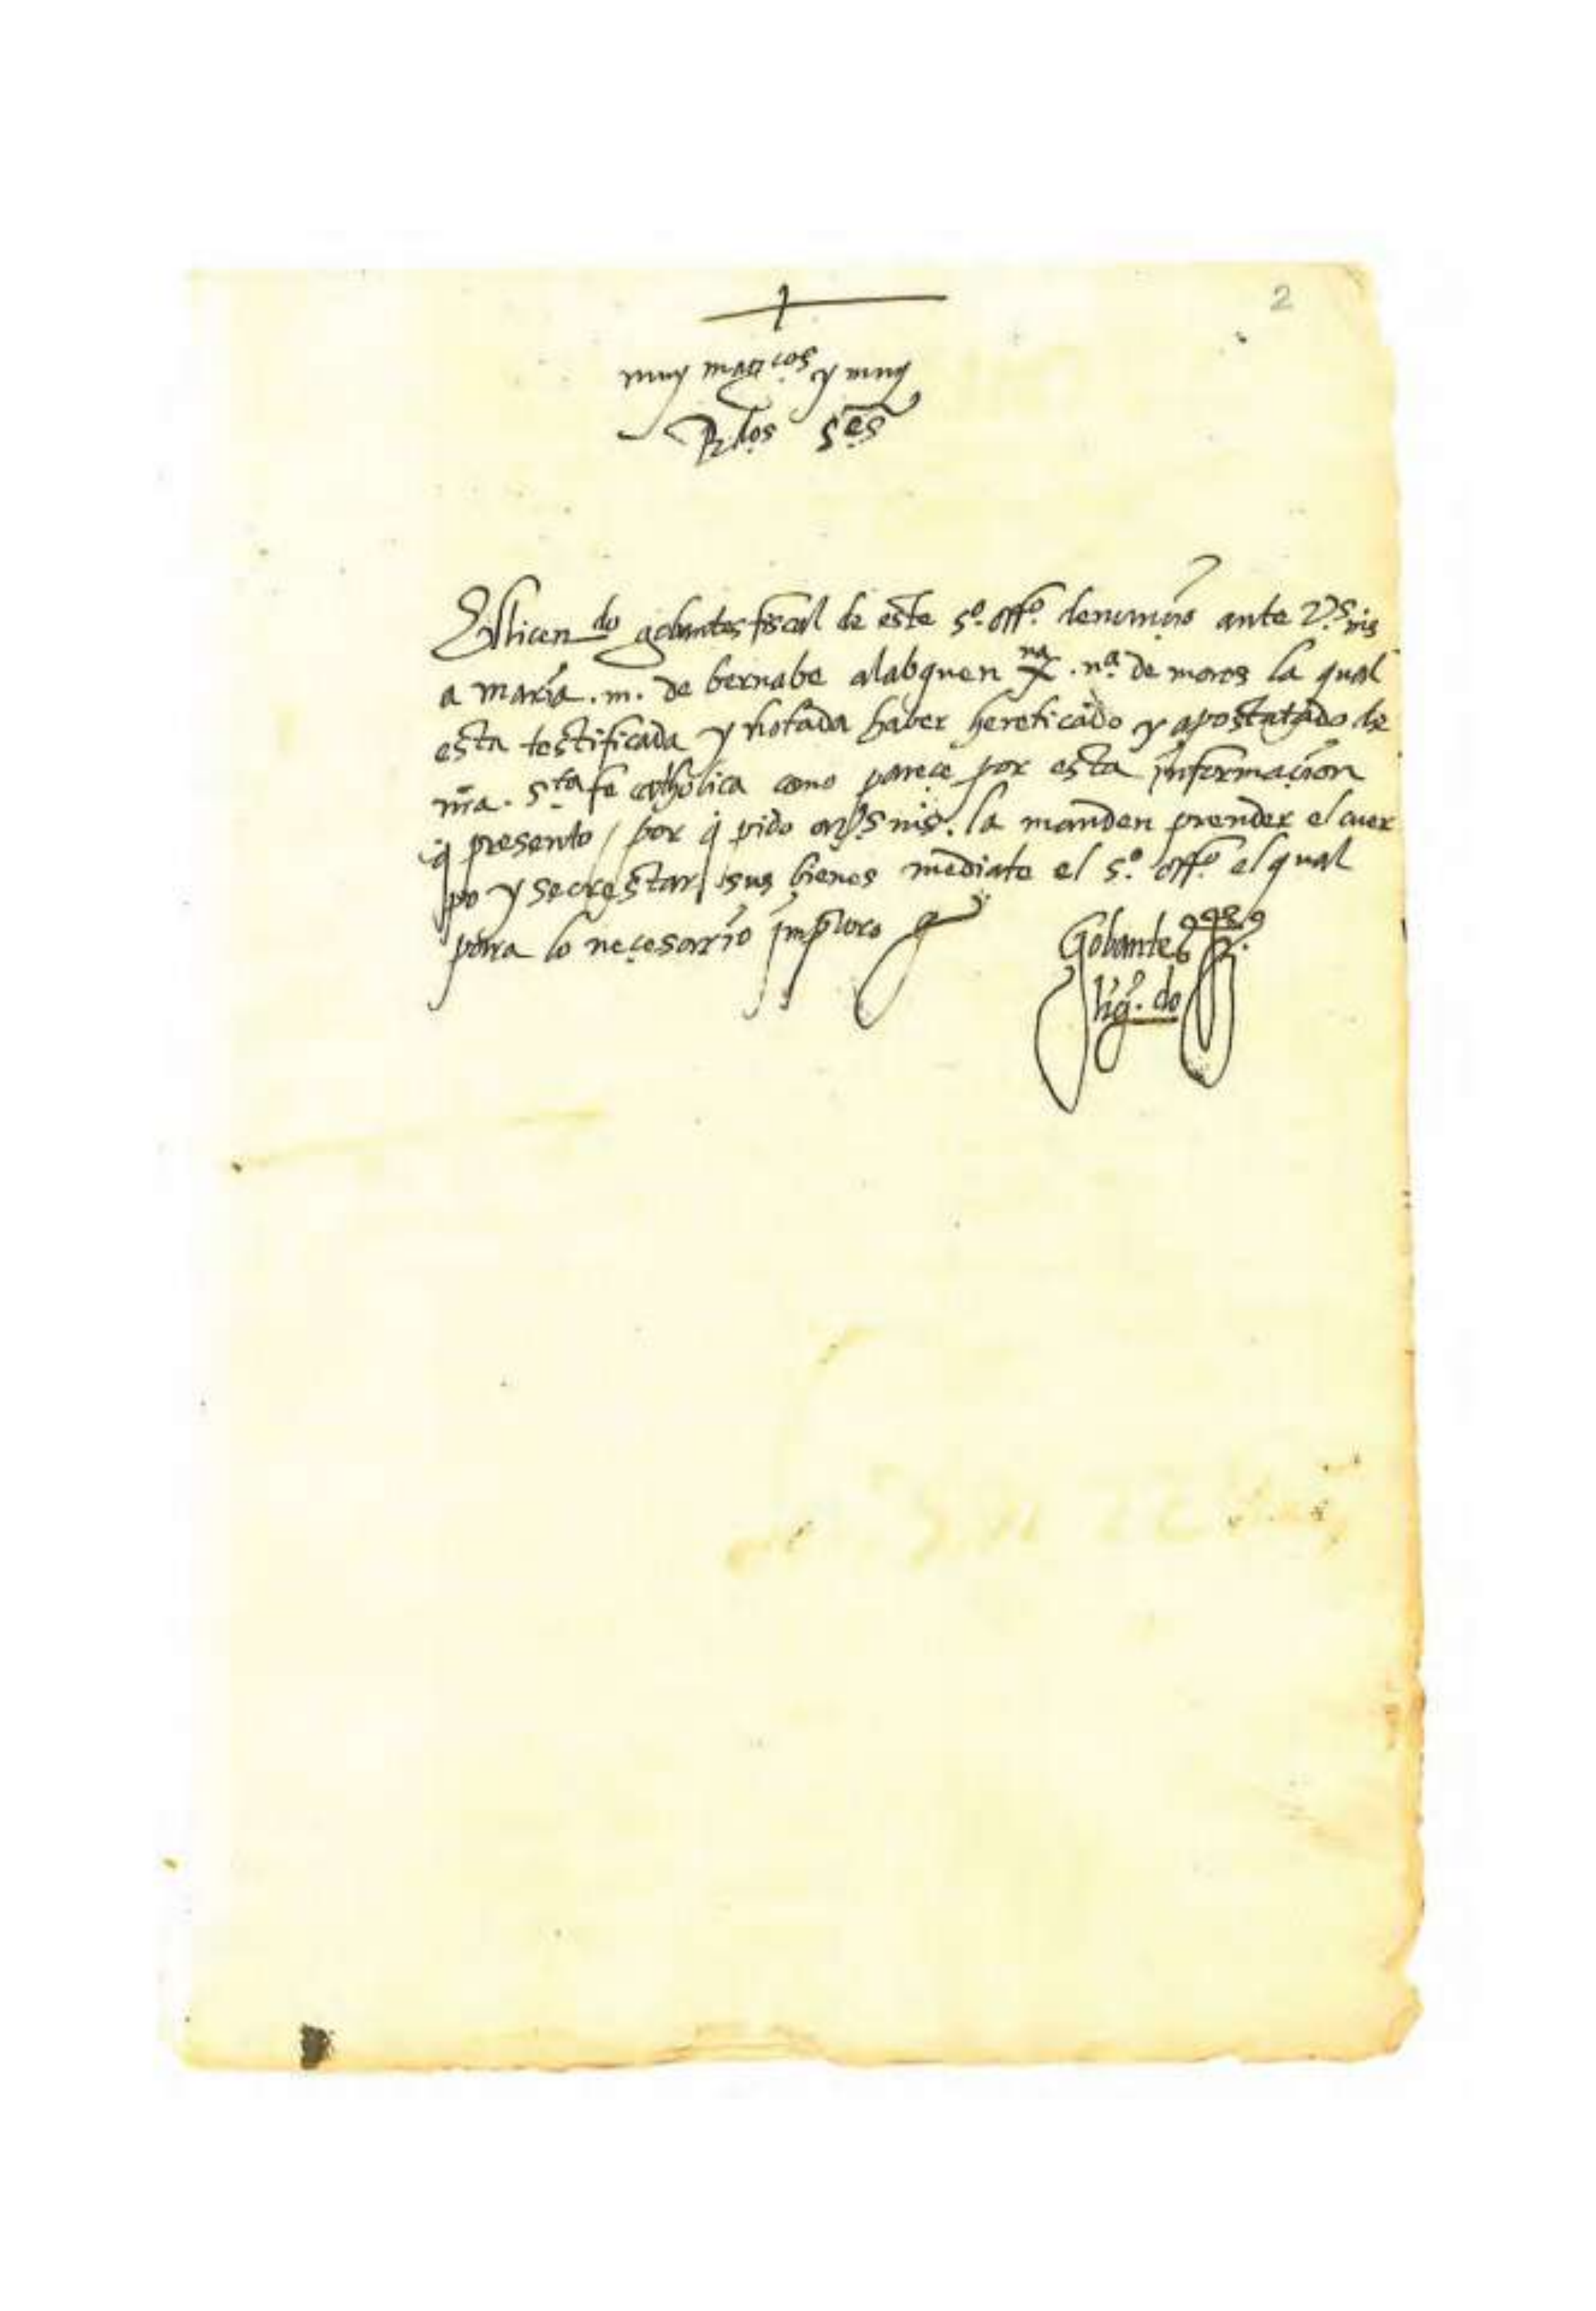 2
muy mag.cos y muy
R.dos S.es
El licen do gobantes fiscal de este s.o off.o denunçio ante V.S. mrs
a maria .m. de bernabe alabquen xna .n.a de moros la qual
esta testificada y notada haber hereticado y apostatado de
nra. s.ta fe catholica como pareçe por esta informaçion
q presento / por q pido a V.S. mrs. la manden prender el cuer
po y secrestar sus bienes mediate el s.o off.o el qual
para lo neçesario imploro
Gobantes
liç.do